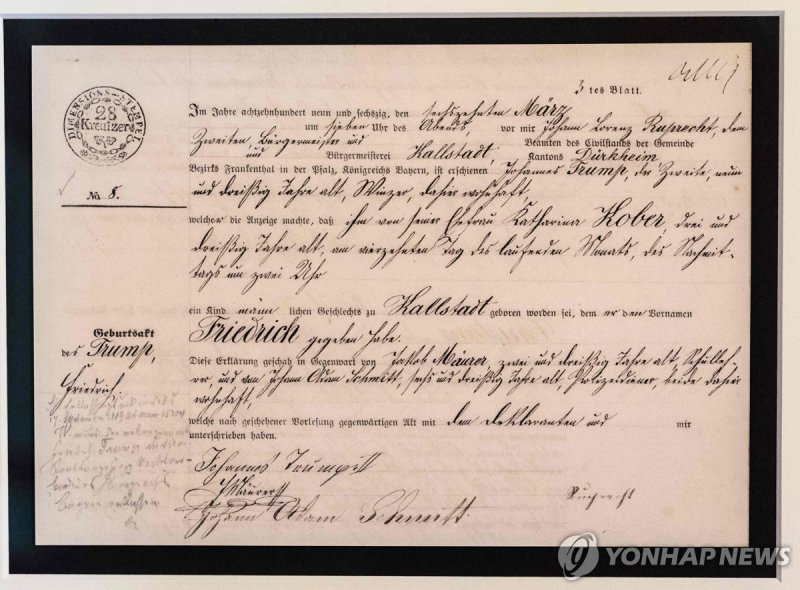 3 tes Blatt.
DIMENSIONS-STEMPEL
28
Kreutzer
Im Jahre achtzehnhundert neun und sechszig, den sechszehnten März
um sieben Uhr des Abends, vor mir Johann Lorenz Ruprecht, dem
Zweiten, Bürgermeister und Beamten des Civilstands der Gemeinde
und Bürgermeisterei Kallstadt, Kantons Dürkheim
Bezirks Frankenthal in der Pfalz, Königreichs Bayern, ist erschienen Johannes Trump, der Zweite, neun
No. 8.
und dreißig Jahre alt, Winzer, daher wohnhaft,
welcher die Anzeige machte, daß ihm von seiner Ehefrau Katharina Kober, drei und
dreißig Jahre alt, am vierzehnten Tag des laufenden Monats, des Nachmit-
tags um zwei Uhr
ein Kind männ lichen Geschlechts zu Kallstadt geboren worden sei, dem er den Vornamen
Friedrich gegeben habe.
Geburtsakt
des Trump,
Friedrich
Diese Erklärung geschah in Gegenwart von Jakob Mäurer, zwei und dreißig Jahre alt, Schulleh-
rer, und von Johann Adam Schmitt, sechs und dreißig Jahre alt, Polizeidiener, beide daher
wohnhaft,
welche nach geschehener Vorlesung gegenwärtigen Akt mit dem Deklaranten und mir
unterschrieben haben.
Johannes Trump II
Mäurer
Ruprecht
Johann Adam Schmitt
YONHAP NEWS